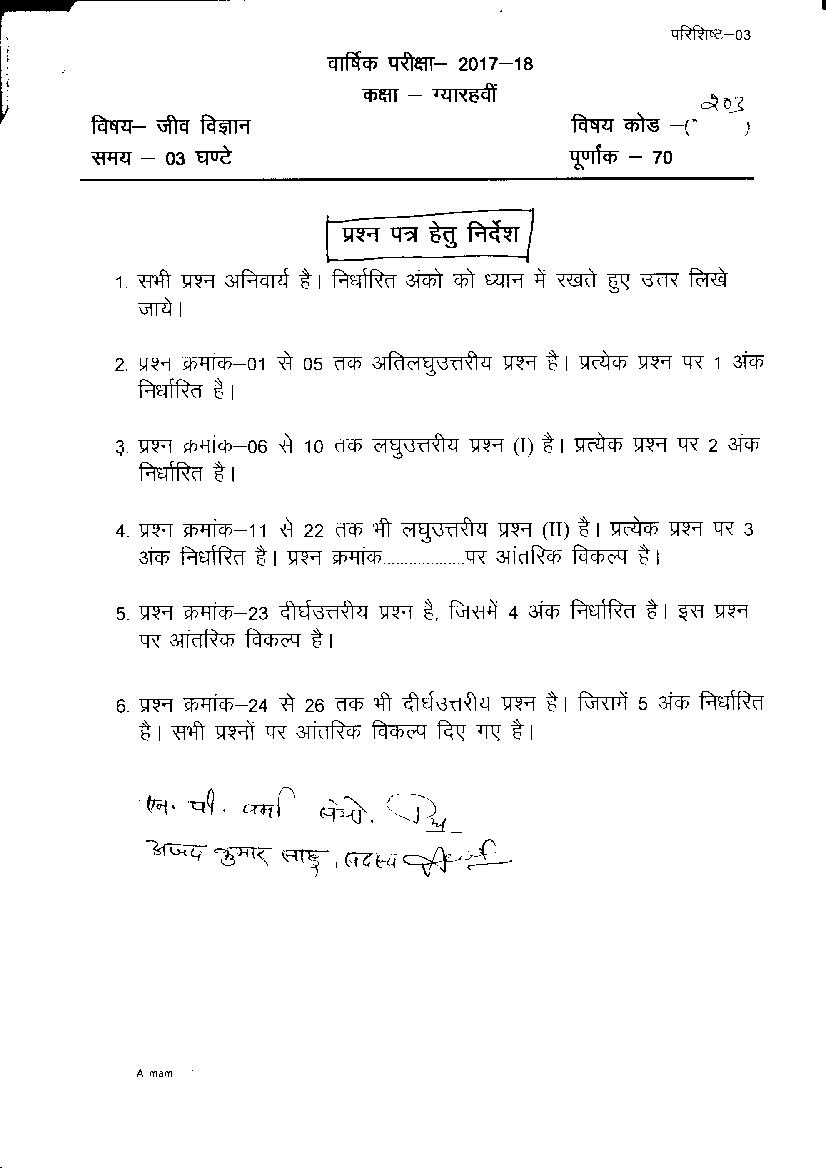 परिशिष्ट–03
वार्षिक परीक्षा– 2017–18
कक्षा – ग्यारहवीं
विषय– जीव विज्ञान
विषय कोड –( 203 )
समय – 03 घण्टे
पूर्णांक – 70
प्रश्न पत्र हेतु निर्देश
1. सभी प्रश्न अनिवार्य है। निर्धारित अंको को ध्यान में रखते हुए उत्तर लिखे
जाये।
2. प्रश्न क्रमांक–01 से 05 तक अतिलघुउत्तरीय प्रश्न है। प्रत्येक प्रश्न पर 1 अंक
निर्धारित है।
3. प्रश्न क्रमांक–06 से 10 तक लघुउत्तरीय प्रश्न (I) है। प्रत्येक प्रश्न पर 2 अंक
निर्धारित है।
4. प्रश्न क्रमांक–11 से 22 तक भी लघुउत्तरीय प्रश्न (II) है। प्रत्येक प्रश्न पर 3
अंक निर्धारित है। प्रश्न क्रमांक...................पर आंतरिक विकल्प है।
5. प्रश्न क्रमांक–23 दीर्घउत्तरीय प्रश्न है, जिसमें 4 अंक निर्धारित है। इस प्रश्न
पर आंतरिक विकल्प है।
6. प्रश्न क्रमांक–24 से 26 तक भी दीर्घउत्तरीय प्रश्न है। जिसमें 5 अंक निर्धारित
है। सभी प्रश्नों पर आंतरिक विकल्प दिए गए है।
एन. पी. वर्मा
अजय कुमार साहू, सदस्य
A mam